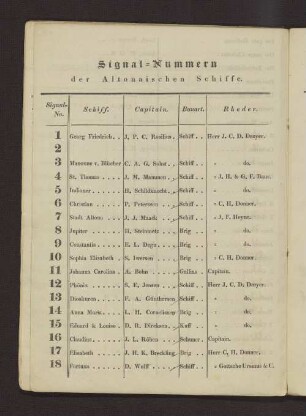 Signal-Nummern
der Altonaischen Schiffe.
Signal-No. Schiff. Capitain. Bauart. Rheder.
1 Georg Friedrich. J. P. C. Schiff Herr J. C. D. Dreyer.
2
3 v. Blücher C. A. G. Schiff „ do.
4 St. Thomas J. M. Mommsen Schiff „ J. H. & G. F. Baur.
5 Indianer H. Schiff „ do.
6 Christian P. Petersen Schiff „ C. H. Donner.
7 Stadt Altona J. J. Schiff „ J. F. Heyne.
8 Jupiter H. Steinmetz Brig „ do.
9 Constantia E. L. Brig „ do.
10 Sophia Elisabeth S. Iversen Brig „ C. H. Donner.
11 Johannes Carolina A. Behn Capitain.
12 S. E. Jessen Schiff Herr J. C. D. Dreyer.
13 F. A. Schiff „ do.
14 Anna Maria L. H. Cornelissen Brig „ do.
15 Eduard & Louise D. R. Dircksen Kuff „ do.
16 Claudine J. L. Schoner Capitain.
17 Elisabeth J. H. K. Brig Herr C. H. Donner.
18 Fortuna D. Wolff Schiff „ & C.